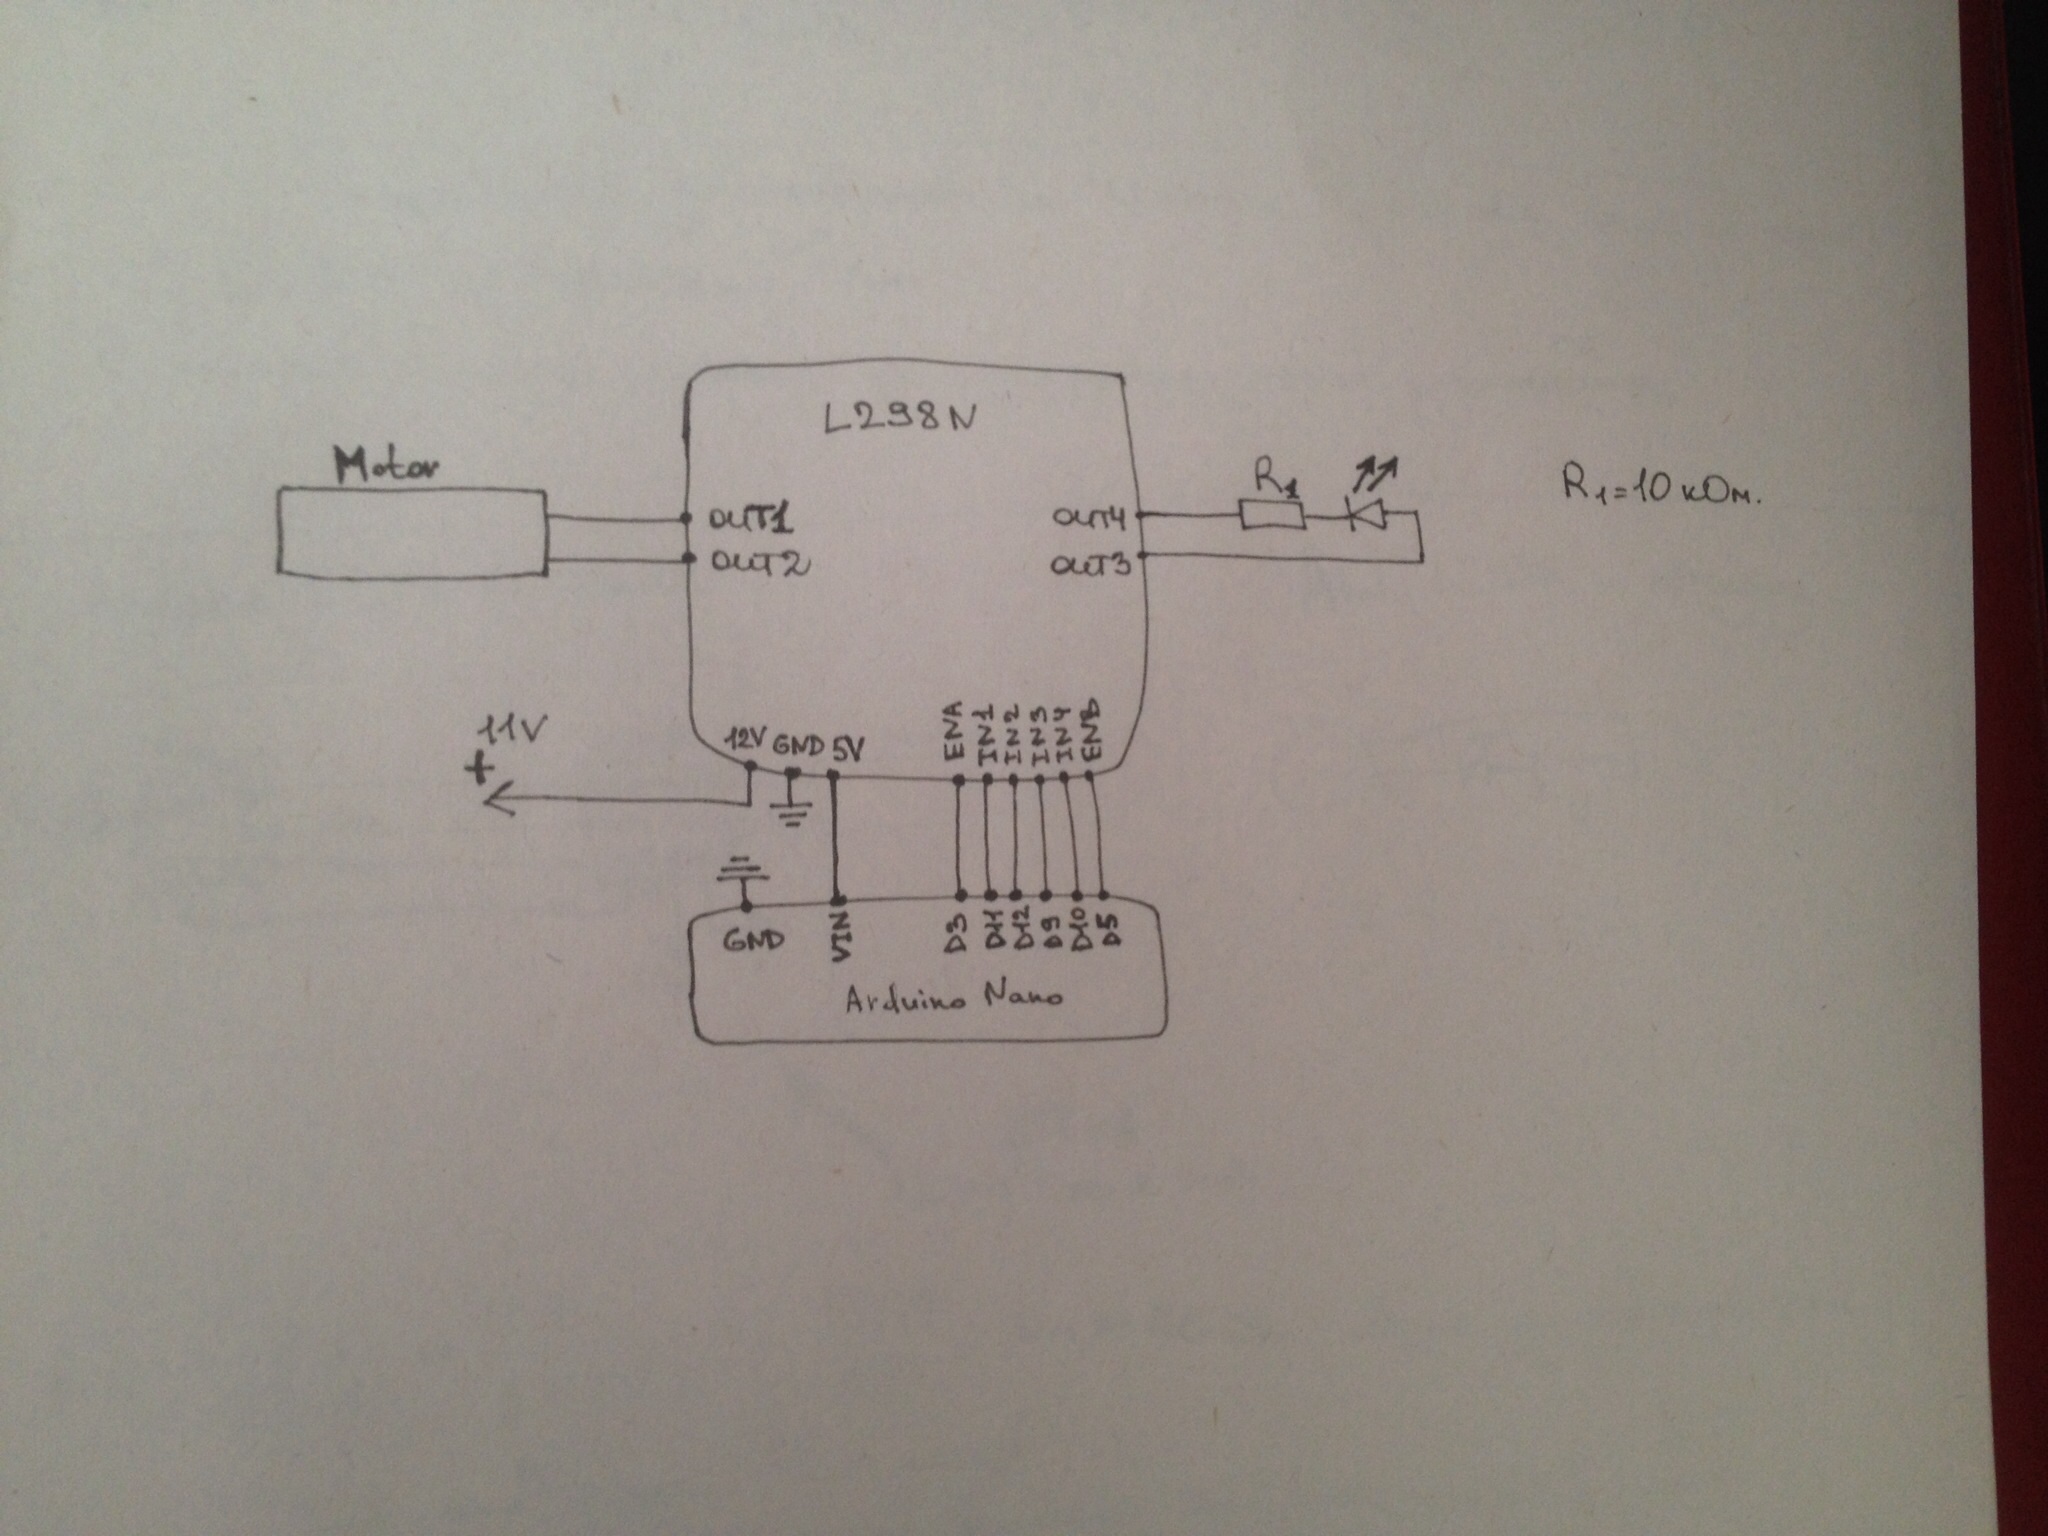 L298N
Motor
OUT1
OUT2
OUT4
OUT3
R1
R1=10 кОм.
+ 11V
12V GND 5V
ENA IN1 IN2 IN3 IN4 ENB
GND VIN D3 D11 D12 D9 D10 D5
Arduino Nano